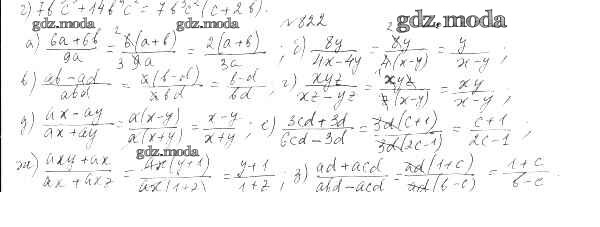 г) 7b²c² + 14b³c² = 7b²c²(c + 2b).
gdz.moda gdz.moda №822 gdz.moda
а) (6a+6b)/(9a) = (6(a+b))/(9a) = (2(a+b))/(3a) ; б) (8y)/(4x-4y) = (8y)/(4(x-y)) = y/(x-y) ;
в) (ab-ad)/(abd) = (a(b-d))/(abd) = (b-d)/(bd) ; г) (xyz)/(xz-yz) = (xyz)/(z(x-y)) = (xy)/(x-y) ;
д) (ax-ay)/(ax+ay) = (a(x-y))/(a(x+y)) = (x-y)/(x+y) ; е) (3cd+3d)/(6cd-3d) = (3d(c+1))/(3d(2c-1)) = (c+1)/(2c-1) ;
gdz.moda
ж) (axy+ax)/(ax+axz) = (ax(y+1))/(ax(1+z)) = (y+1)/(1+z) ; з) (ad+acd)/(abd-acd) = (ad(1+c))/(ad(b-c)) = (1+c)/(b-c) .